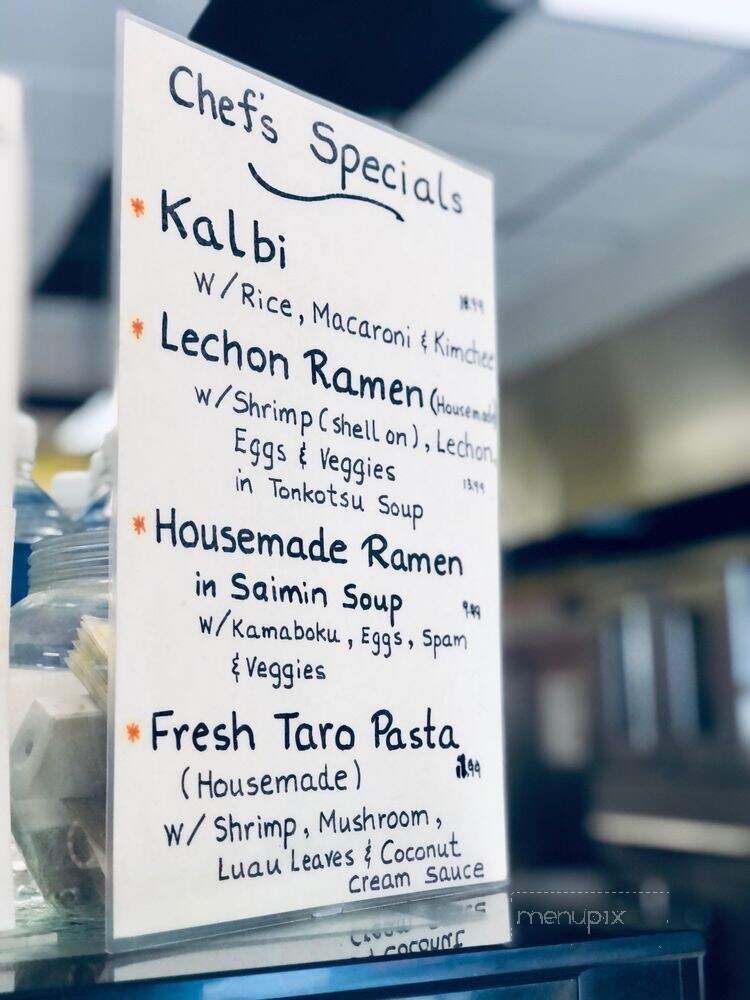 Chef's Specials
* Kalbi
18.99
W/Rice, Macaroni & Kimchee
* Lechon Ramen (Housemade)
w/Shrimp (shell on), Lechon,
Eggs & Veggies
13.99
in Tonkotsu Soup
* Housemade Ramen
in Saimin Soup
9.99
W/Kamaboku, Eggs, Spam
& Veggies
* Fresh Taro Pasta
(Housemade)
w/ Shrimp, Mushroom,
Luau Leaves & Coconut
cream sauce
menupix